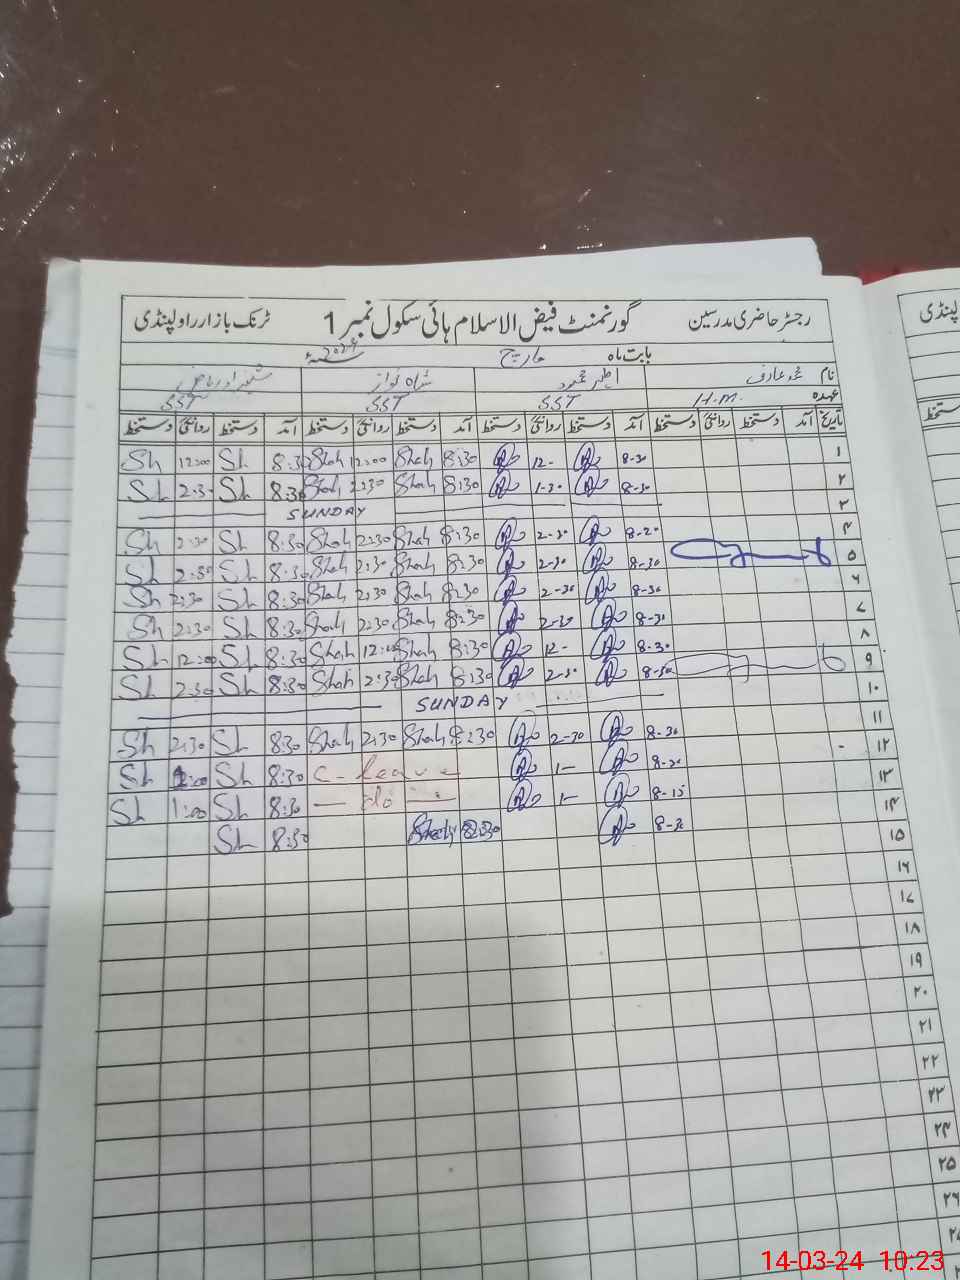 رجسٹر حاضری مدرسین گورنمنٹ فیض الاسلام ہائی سکول نمبر 1 ٹرنک بازار راولپنڈی
بابت ماہ مارچ 2024
نام محمد عارف اظہر محمود شاہ نواز
عہدہ H.M. SST SST SST
تاریخ آمد دستخط روانگی دستخط آمد دستخط روانگی دستخط آمد دستخط روانگی دستخط آمد دستخط روانگی دستخط
۱ 8-30 12- 8:30 Shah 12:00 Shah 8:30 Sh 12:00 Sh
۲ 8-30 1-30 8:30 Shah 2:30 Shah 8:30 Sh 2:30 Sh
۳ SUNDAY
۴ 8-20 2-30 8:30 Shah 2:30 Shah 8:30 Sh 2:30 Sh
۵ 8-30 2-30 8:30 Shah 2:30 Shah 8:30 Sh 2:30 Sh
۶ 8-30 2-30 8:30 Shah 2:30 Shah 8:30 Sh 2:30 Sh
۷ 8-30 2-30 8:30 Shah 2:30 Shah 8:30 Sh 2:30 Sh
۸ 8-30 12- 8:30 Shah 12:00 Shah 8:30 Sh 12:00 Sh
۹ 8-30 2-30 8:30 Shah 2:30 Shah 8:30 Sh 2:30 Sh
۱۰ SUNDAY
۱۱ 8-30 2-30 8:30 Shah 2:30 Shah 8:30 Sh 2:30 Sh
۱۲ 1- C-leave 8:30 Sh 1:00 Sh
۱۳ 8-15 1- do 8:30 Sh 1:00 Sh
۱۴ 8-30 8:30 Shah 8:30 Sh
۱۵
۱۶
۱۷
۱۸
۱۹
۲۰
۲۱
۲۲
۲۳
۲۴
۲۵
۲۶
14-03-24 10:23